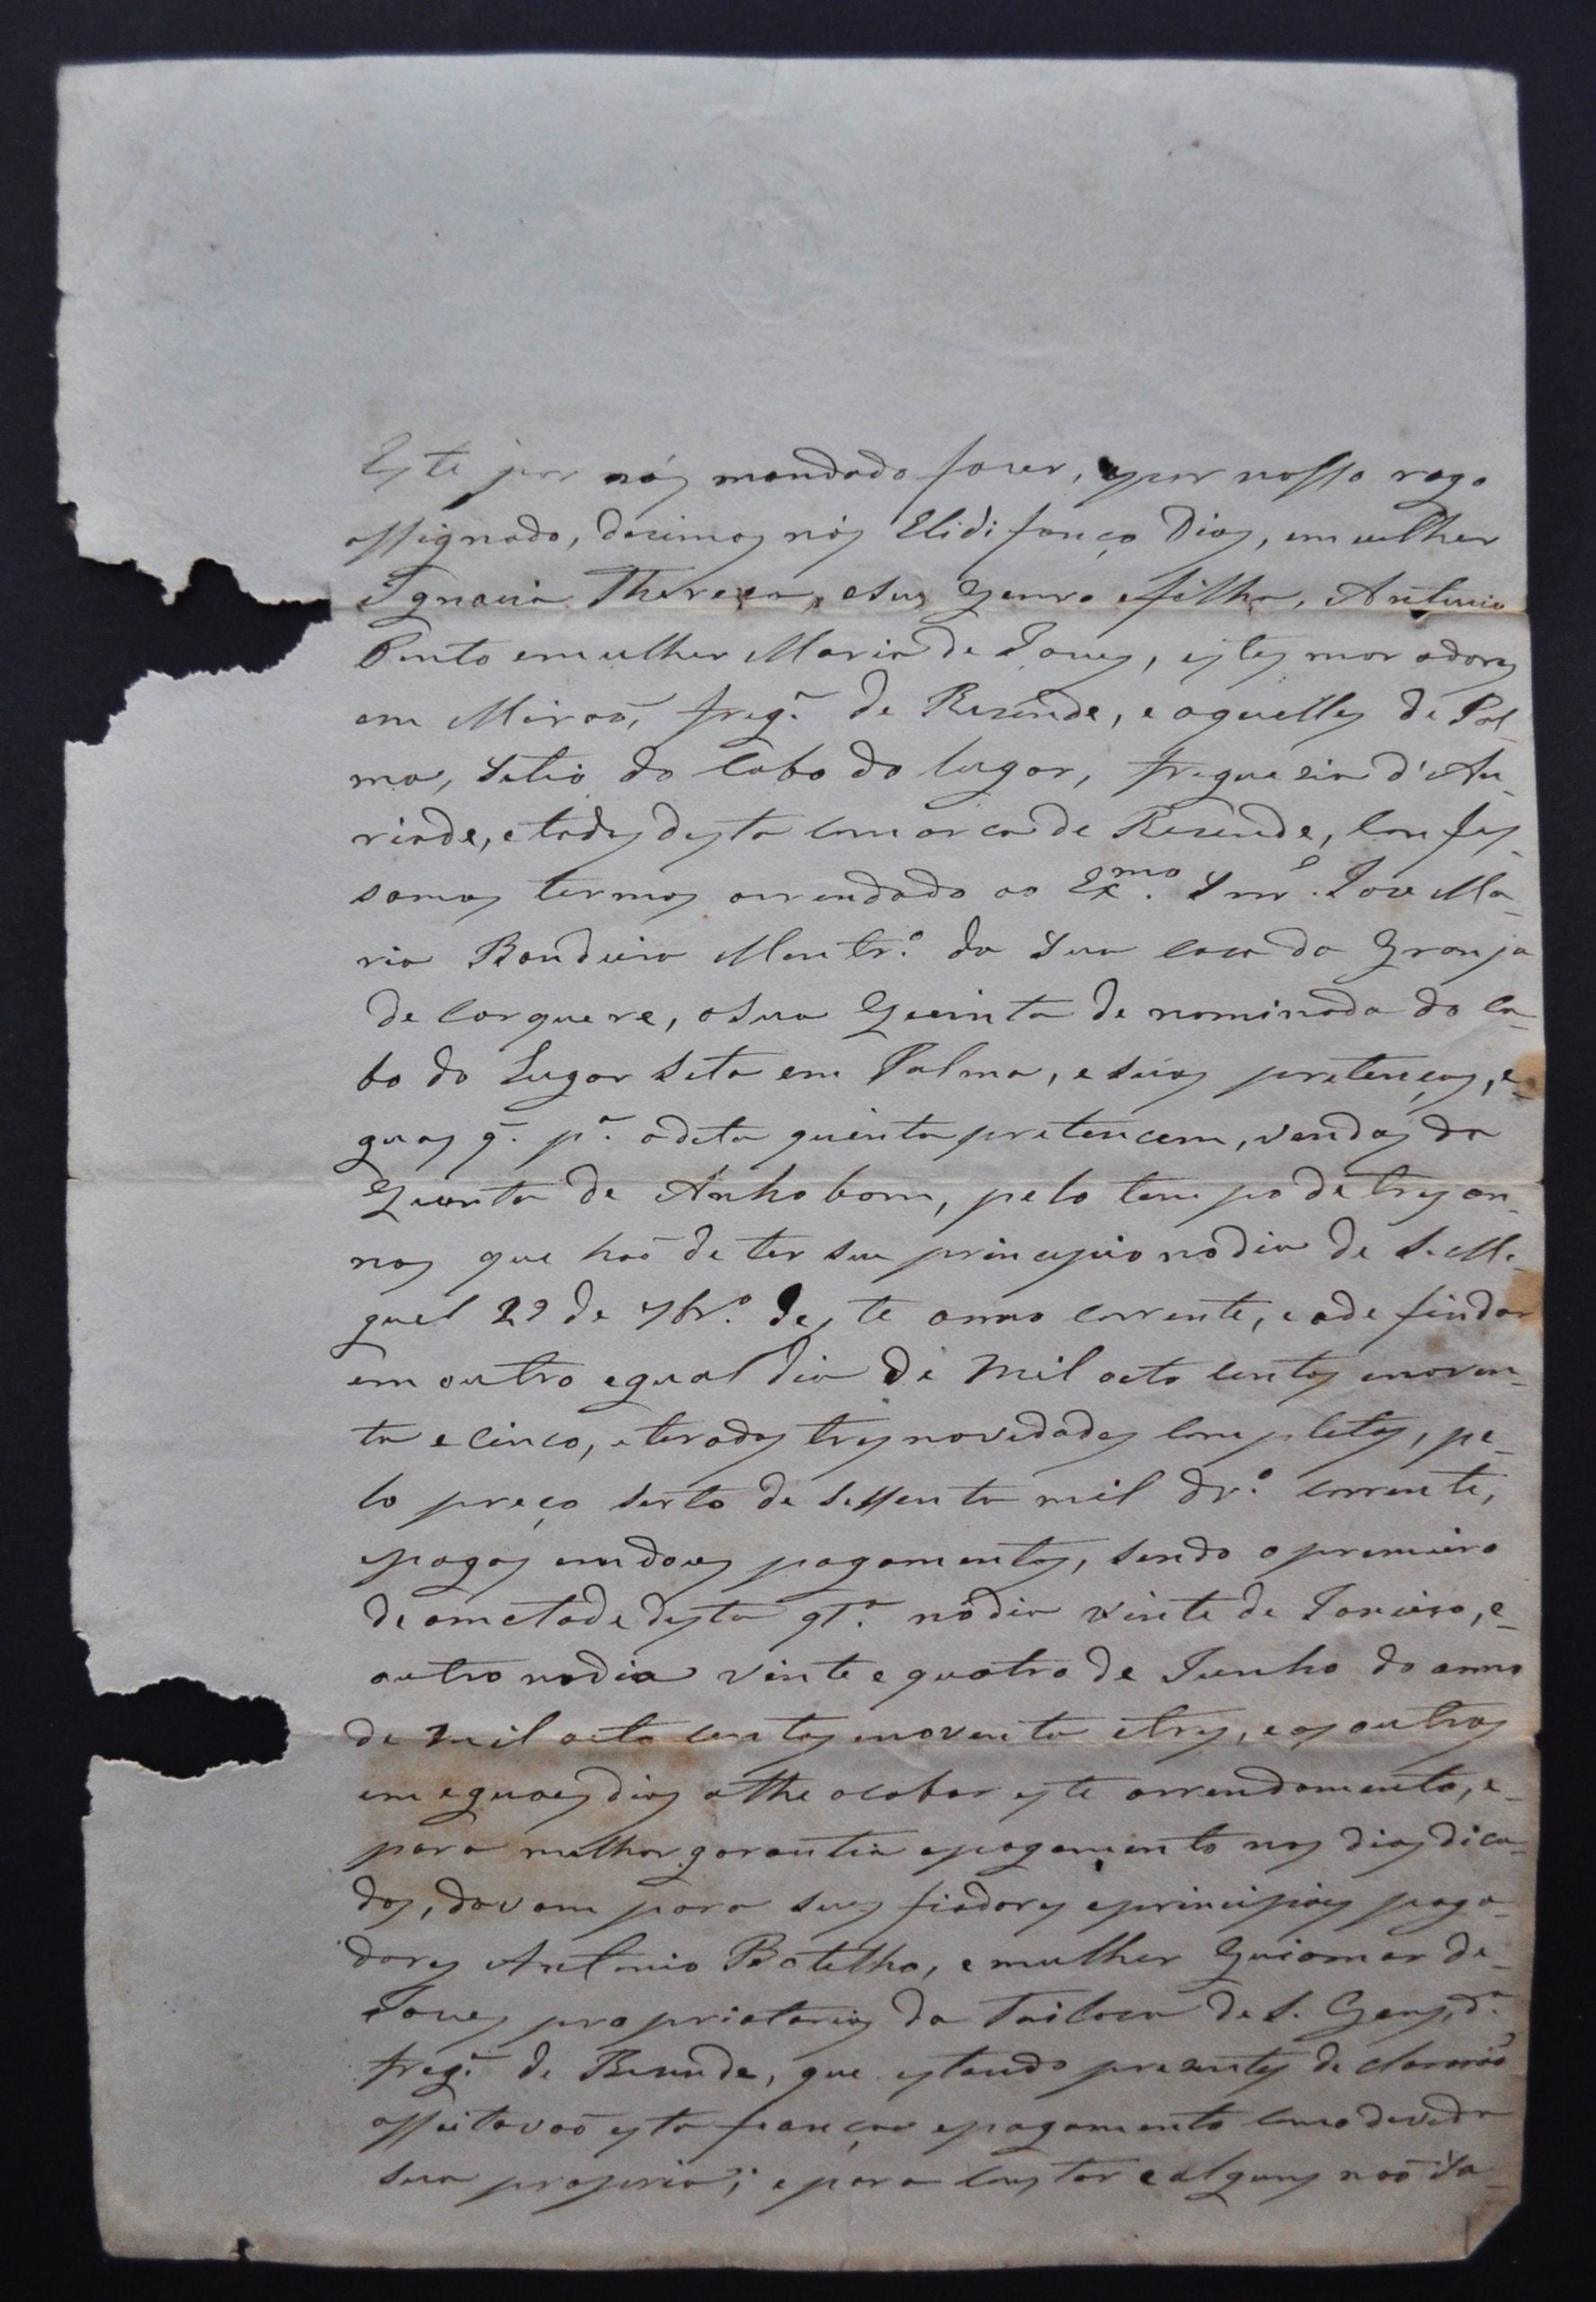 Este por nós mandado fazer, e por nosso rogo
assignado, dizimos nós Elidifonço Dias, e mulher
Ignacia Thereza, e Sus Genro e filha, Antonio
Pinto e mulher Maria de Jesus, estes moradores
em Mirão, freg.ª de Resende, e aquelles de Pal-
ma, Sitio do Cabo do lugar, freguezia d'An-
riade, e todos desta comarca de Resende, Confes-
samos termos arrendado ao Ex.mo Snr. José Ma-
ria Bandeira Montr.º da Sua Casa da Granja
de Carquere, a Sua Quinta de nominada do Ca-
bo do Lugar Sita em Palma, e suas pretenças, e
guas q.̃ p.ª a dita quinta pretencem, vendas da
Quinta de Anhobom, pelo tempo de tres an-
nos que hão de ter seu principio no dia de S. Mi-
guel 29 de 7br.º deste anno corrente, e ade findar
em outro egual dia de Mil oito centos e noven-
ta e Cinco, e terados tres novidades Completas, pe-
lo preço Serto de Sessenta mil dr.º corrente,
e pagos em dous pagamentos, Sendo o premeiro
de ametade desta qt.ª no dia vinte de Janeiro, e
outro no dia vinte e quatro de Junho do anno
de Mil oito centos e noventa e tres, e os outros
em eguaes dias athe acabar este arrendamento, e
para milhor garantia e pagamento nos dias dica-
dos, davam para Sues fiadores e principaes paga-
dores Antonio Botelho, e mulher Guiomar de
Jesus proprietarios da de S. Gens, d.ª
freg.ª de Resende, que estando presentes de clararão
asseitavão esta fiança e pagamento como devida
Sua propria; e para Constar e alguns não Sa-